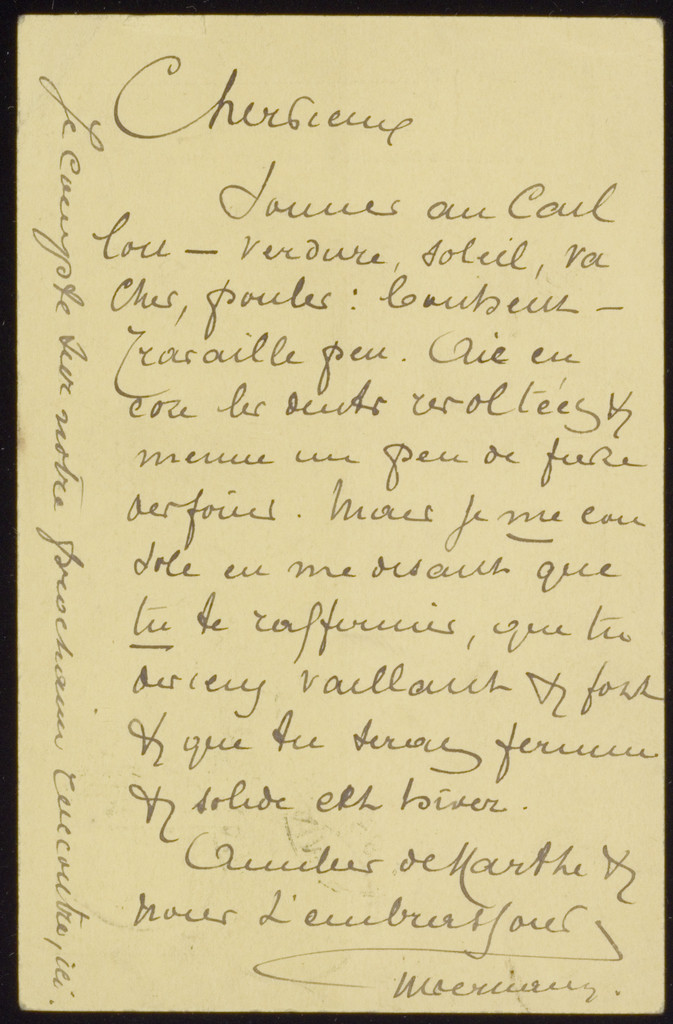 Cher vieux
Sommes au Cail
lou – verdure, soleil, va
ches, poules :
Travaille peu. Ai eu en
cor les dents révoltées &
même un peu de fièvre
des foins. Mais je me con
sole en me disant que
tu te raffermis, que tu
deviens vaillant & fort
& que tu seras ferme
& solide cet hiver.
Amitiés de Marthe &
nous t'embrassons
Je compte sur notre prochaine rencontre, ici.